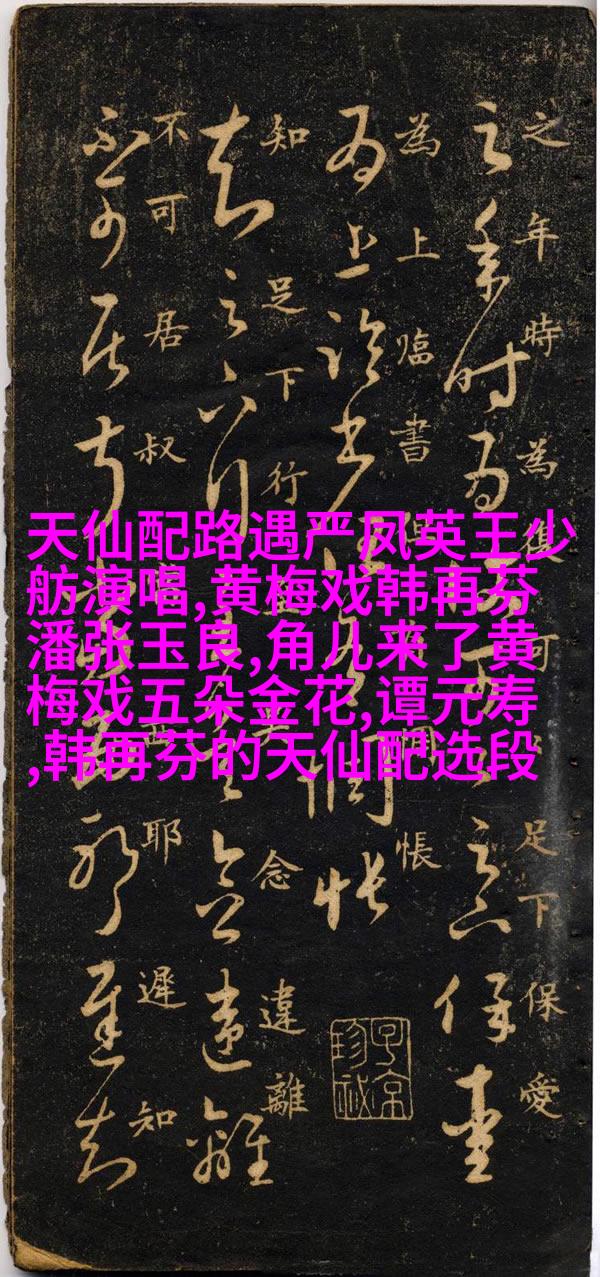 天仙配路遇严凤英王少
舫演唱,黄梅戏韩再芬
潘张玉良,角儿来了黄
梅戏五朵金花,谭元寿
,韩再芬的天仙配选段
之年時為復可足下保愛
為上臨書悵
知足下行念違離
不可居叔耶遲知
子京珍秘